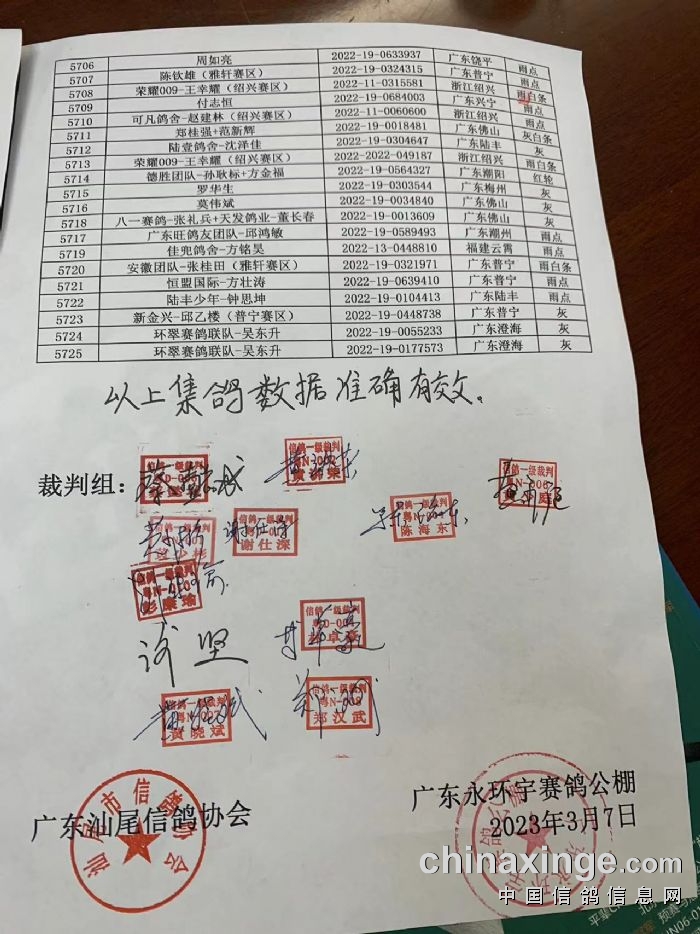 5706 周如亮 2022-19-0633937 广东饶平 雨点
5707 陈钦雄（雅轩赛区） 2022-19-0324315 广东普宁 雨点
5708 荣耀009-王幸耀（绍兴赛区） 2022-11-0315581 浙江绍兴 雨白条
5709 付志恒 2022-19-0684003 广东兴宁 雨点
5710 可凡鸽舍-赵建林（绍兴赛区） 2022-11-0060600 浙江绍兴 雨点
5711 郑桂强+范新辉 2022-19-0018481 广东佛山 灰白条
5712 陆壹鸽舍-沈泽佳 2022-19-0304647 广东陆丰 灰
5713 荣耀009-王幸耀（绍兴赛区） 2022-2022-049187 浙江绍兴 雨白条
5714 德胜团队-孙耿标+方金福 2022-19-0564327 广东潮阳 红轮
5715 罗华生 2022-19-0303544 广东梅州 灰
5716 莫伟斌 2022-19-0034840 广东佛山 灰
5718 八一赛鸽-张礼兵+天发鸽业-董长春 2022-19-0013609 广东佛山 灰
5717 广东旺鸽友团队-邱鸿敏 2022-19-0589493 广东潮州 雨点
5719 佳兜鸽舍-方铭昊 2022-13-0448810 福建云霄 雨点
5720 安徽团队-张桂田（雅轩赛区） 2022-19-0321971 广东普宁 雨白条
5721 恒盟国际-方壮涛 2022-19-0639410 广东普宁 雨点
5722 陆丰少年-钟思坤 2022-19-0104413 广东陆丰 雨点
5723 新金兴-邱乙楼（普宁赛区） 2022-19-0448738 广东普宁 灰
5724 环翠赛鸽联队-吴东升 2022-19-0055233 广东澄海 灰
5725 环翠赛鸽联队-吴东升 2022-19-0177573 广东澄海 灰
以上集鸽数据准确有效。
裁判组：
信鸽一级裁判
信鸽一级裁判
信鸽一级裁判
谢仕深
陈海东
彭康瑜
信鸽一级裁判
信鸽一级裁判
黄晓斌
信鸽一级裁判
郑汉武
广东汕尾信鸽协会
汕尾市信鸽协会
广东永环宇赛鸽公棚
2023年3月7日
chinaxinge.com
中国信鸽信息网